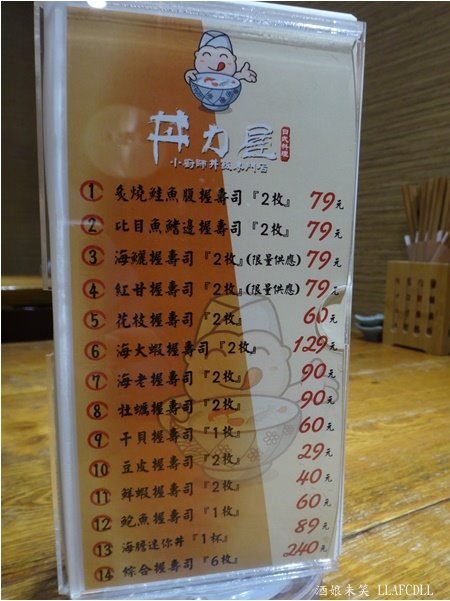 丼力屋
日式料理
小廚師丼飯專門店
1 炙燒鮭魚腹握壽司『2枚』 79元
2 比目魚鰭邊握壽司『2枚』 79元
3 海鱺握壽司『2枚』(限量供應) 79元
4 紅甘握壽司『2枚』(限量供應) 79元
5 花枝握壽司『2枚』 60元
6 海大蝦握壽司『2枚』 129元
7 海老握壽司『2枚』 90元
8 牡蠣握壽司『2枚』 90元
9 干貝握壽司『1枚』 60元
10 豆皮握壽司『2枚』 29元
11 鮮蝦握壽司『2枚』 40元
12 鮑魚握壽司『1枚』 60元
13 海膽迷你丼『1杯』 89元
14 綜合握壽司『6枚』 240元
酒娘未笑 LLAFCDLL